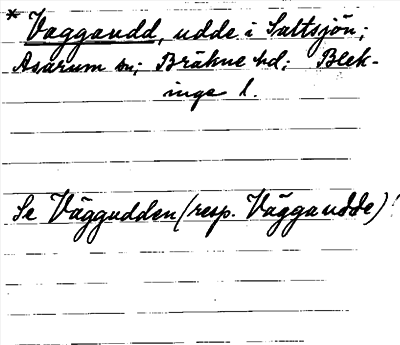 * Vaggaudd, udde i Saltsjön;
Asarum sn; Bräkne hd; Blek-
inge l.
Se Väggudden (resp. Väggaudde)!